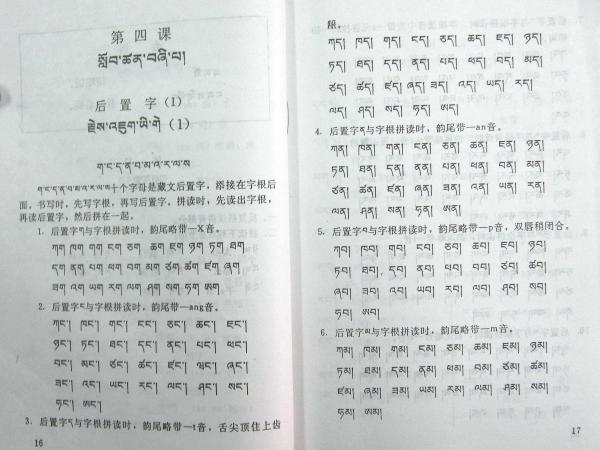 第四课
སློབ་ཚན་བཞི་པ།
后置字（1）
རྗེས་འཇུག་ཡི་གེ（1）
ག་ང་ད་ན་བ་མ་འ་ར་ལ་ས
ག་ང་ད་ན་བ་མ་འ་ར་ལ་ས十个字母是藏文后置字，添接在字根后
面。书写时，先写字根，再写后置字。拼读时，先读出字根，
再读后置字，然后拼在一起。
1. 后置字ག与字根拼读时，韵尾略带—X音。
ཀག ཁག གག ངག ཅག ཆག ཇག ཉག ཏག ཐག
དག ནག པག ཕག བག མག ཙག ཚག ཛག ཞག
ཟག འག ཡག རག ལག ཤག སག ཧག ཨག
2. 后置字ང་与字根拼读时，韵尾略带—ang音。
ཀང་། ཁང་། གང་། ངང་། ཅང་། ཆང་། ཇང་།
ཉང་། ཏང་། ཐང་། དང་། ནང་། པང་། ཕང་།
བང་། མང་། ཙང་། ཚང་། ཛང་། ཝང་། ཞང་།
ཟང་། འང་། ཡང་། རང་། ལང་། ཤང་། སང་།
ཧང་། ཨང་།
3. 后置字ད与字根拼读时，韵尾略带—t音，舌尖顶住上齿
16
龈。
ཀད། ཁད། གད། ངད། ཅད། ཆད། ཇད། ཉད།
ཏད། ཐད། དད། ནད། པད། ཕད། བད། མད།
ཙད། ཚད། ཛད། ཞད། ཟད། འད། ཡད། རད།
ལད། ཤད། སད། ཧད། ཨད།
4. 后置字ན与字根拼读时，韵尾带—an音。
ཀན། ཁན། གན། ངན། ཅན། ཆན། ཇན། ཉན།
ཏན། ཐན། དན། ནན། པན། ཕན། བན། མན།
ཙན། ཚན། ཛན། ཞན། ཟན། འན། ཡན། རན།
ལན། ཤན། སན། ཧན། ཨན།
5. 后置字བ与字根拼读时，韵尾略带—p音，双唇稍闭合。
ཀབ། ཁབ། གབ། ངབ། ཅབ། ཆབ། ཇབ། ཉབ།
ཏབ། ཐབ། དབ། ནབ། པབ། ཕབ། ཙབ། ཚབ།
ཛབ། ཞབ། ཟབ། འབ། ཡབ། རབ། ལབ། ཤབ། སབ།
ཧབ། ཨབ།
6. 后置字མ与字根拼读时，韵尾略带—m音。
ཀམ། ཁམ། གམ། ངམ། ཅམ། ཆམ། ཇམ། ཉམ།
ཏམ། ཐམ། དམ། ནམ། པམ། ཕམ། ཙམ། ཚམ།
ཛམ། ཞམ། ཟམ། འམ། ཡམ། རམ། ལམ། ཤམ། སམ།
ཧམ། ཨམ།
17